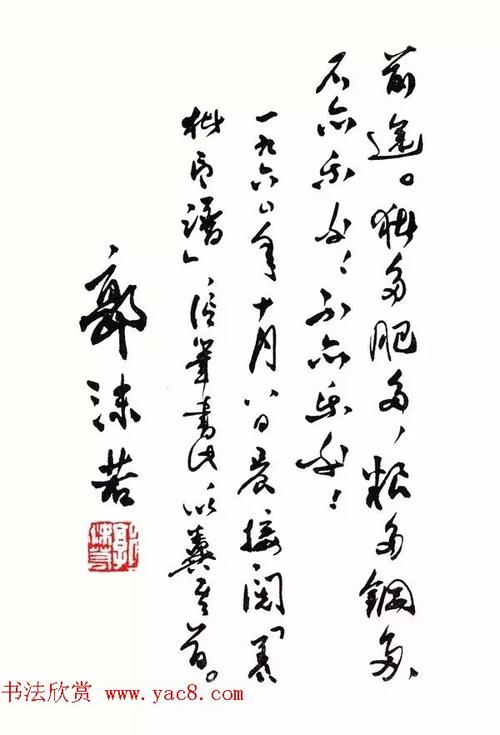 前途。猪多肥多，粮多鋼多，
不亦乐乎！不亦乐乎！
一九六〇年十月八日晨接閱「养
猪印谱」，信筆書此，以其首。
郭沫若
郭沫若
书法欣赏 www.yac8.com